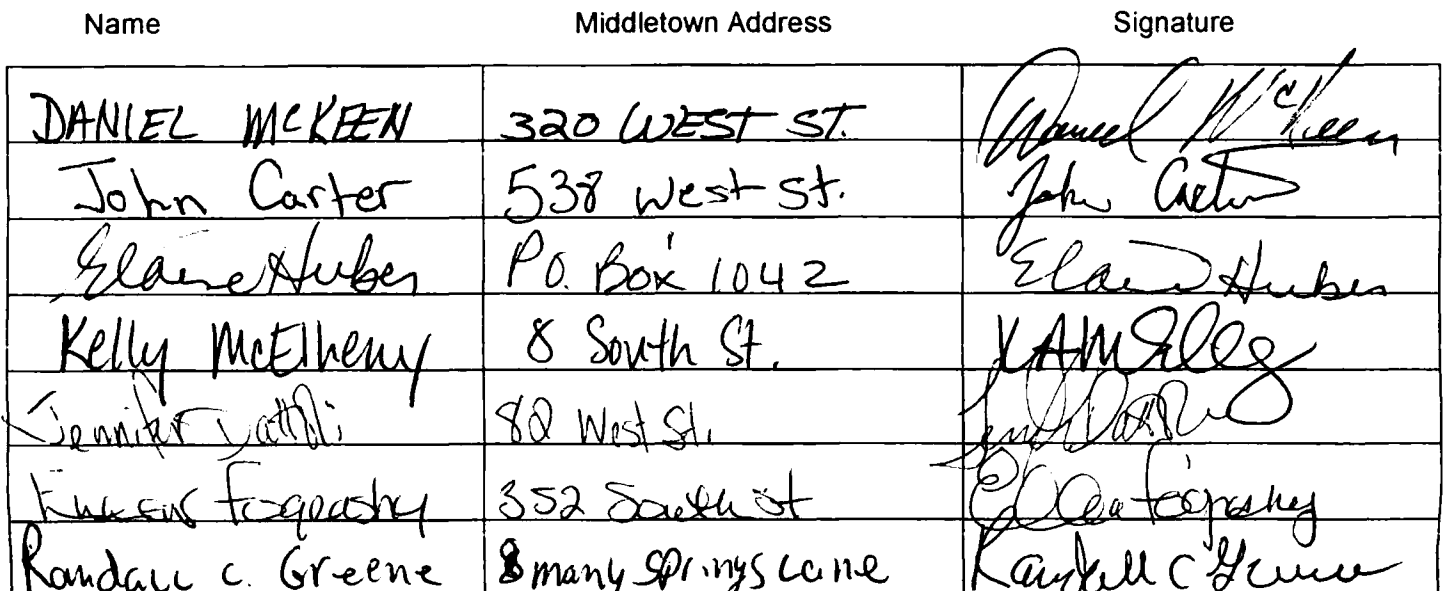 Name Middletown Address Signature
DANIEL MCKEEN 320 WEST ST. Daniel McKeen
John Carter 538 West St. John Carter
Elaine Huber P.O. Box 1042 Elaine Huber
Kelly McElheny 8 South St.
Jennifer 82 West St.
352 South St
Randall C. Greene 8 many Springs Lane Randall C Greene